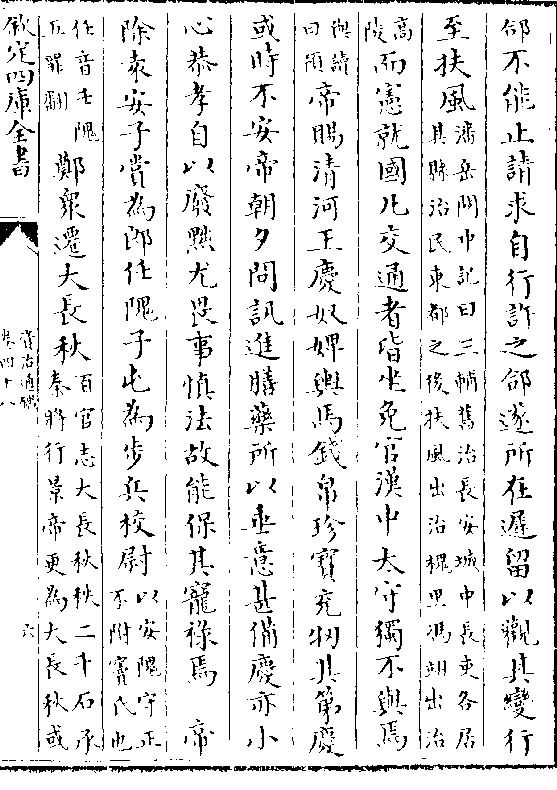 郃不能止請求自行許之郃遂所在遲留以觀其變行
至扶風潘岳關中記曰三輔舊治長安城中長吏各居
其縣治民東都之後扶風出治槐里馮翊出治
高
陵而憲就國凡交通者皆坐免官漢中太守獨不與焉
與讀
曰預帝賜清河王慶奴婢輿馬錢帛珍寶充牣其第慶
或時不安帝朝夕問訊進膳藥所以垂意甚備慶亦小
心恭孝自以廢黜尤畏事慎法故能保其寵祿焉 帝
除袁安子賞為郎任隗子屯為步兵校尉以安隗守正
不附竇氏也
任音壬隗
五罪翻鄭衆遷大長秋百官志大長秋秩二千石承
秦將行景帝更為大長秋或
欽定四庫全書
資治通鑑
卷四十八
六